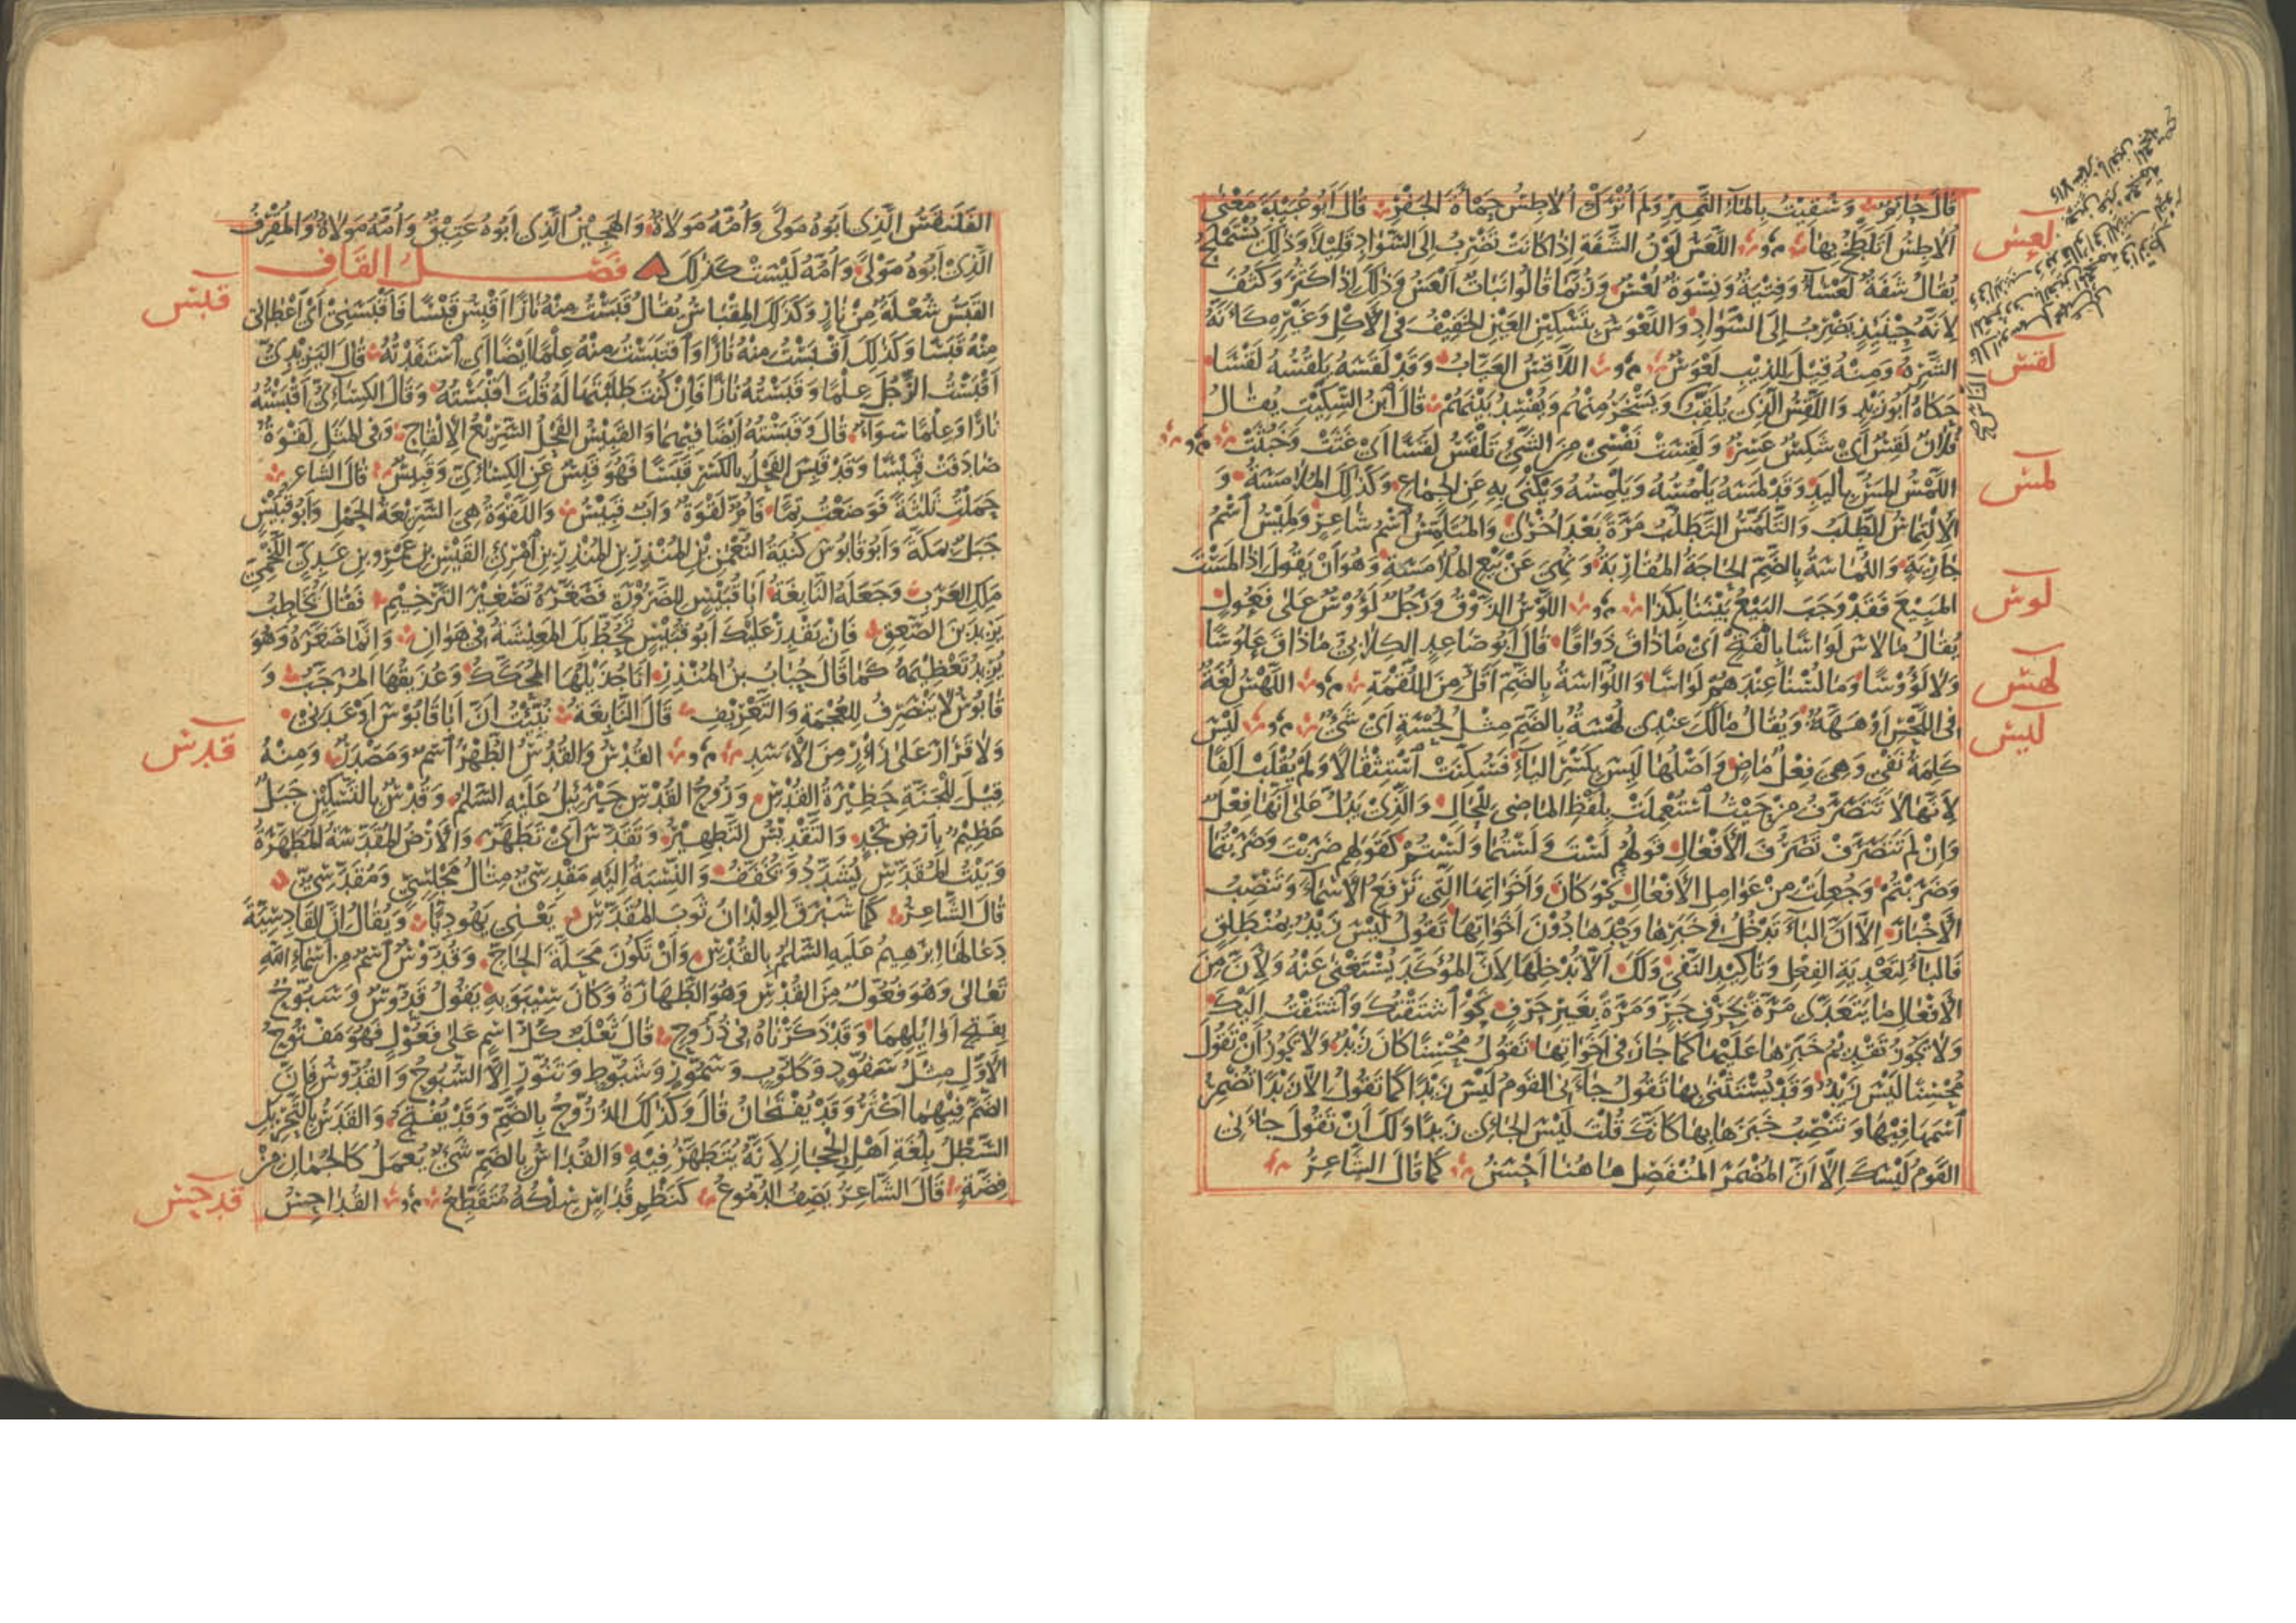 قَالَ
وَشُقِيْتُ بِالمَآءِ النَّمِيْرِ وَلَمْ أُتْرَكْ أُلَاطِسُ حَمْأَةَ الحَفْرِ قَالَ أَبُو عُبَيْدَةَ مَعْنَى
لعس
أُلَاطِسُ أَتَلَطَّخُ بِهَا اللَّعَسُ لَوْنُ الشَّفَةِ إِذَا كَانَتْ تَضْرِبُ إِلَى السَّوَادِ قَلِيْلًا وَذٰلِكَ يُسْتَمْلَحُ
يُقَالُ شَفَةٌ لَعْسَآءُ وَفِتْيَةٌ وَنِسْوَةٌ لُعْسٌ وَرُبَّمَا قَالُوا نَبَاتٌ أَلْعَسُ وَذٰلِكَ إِذَا كَثُرَ وَكَثُفَ
لِأَنَّهُ حِيْنَئِذٍ يَضْرِبُ إِلَى السَّوَادِ وَاللَّعْوَسُ بِتَسْكِيْنِ العَيْنِ الخَفِيْفُ فِي الأَكْلِ وَغَيْرِهِ كَأَنَّهُ
لقس
الشَّرِهُ وَمِنْهُ قِيْلَ لِلذِّيْبِ لَعْوَسٌ اللَّاقِسُ العَيَّابُ وَقَدْ لَقَسَهُ يَلْقُسُهُ لَقْسًا
حَكَاهُ أَبُو زَيْدٍ وَاللَّقِسُ الَّذِي يُلَقِّبُ وَيَسْخَرُ مِنْهُمْ وَيُفْسِدُ بَيْنَهُمْ قَالَ ابْنُ السِّكِّيْتِ يُقَالُ
فُلَانٌ لَقِسٌ أَيْ شَكِسٌ عَسِرٌ وَلَقِسَتْ نَفْسِي مِنَ الشَّيْءِ تَلْقَسُ لَقَسًا أَيْ غَثَتْ وَخَبُثَتْ
لمس
اللَّمْسُ المَسُّ بِاليَدِ وَقَدْ لَمَسَهُ يَلْمُسُهُ وَيَلْمِسُهُ وَيُكْنَى بِهِ عَنِ الجِمَاعِ وَكَذٰلِكَ المُلَامَسَةُ وَ
الِالْتِمَاسُ الطَّلَبُ وَالتَّلَمُّسُ التَّطَلُّبُ مَرَّةً بَعْدَ أُخْرَى وَالمُتَلَمِّسُ اسْمُ شَاعِرٍ وَلَمِيْسُ اسْمُ
جَارِيَةٍ وَاللُّمَاسَةُ بِالضَّمِّ الحَاجَةُ المُقَارِبَةُ وَنُهِيَ عَنْ بَيْعِ المُلَامَسَةِ وَهُوَ أَنْ يَقُولَ إِذَا لَمَسْتَ
لوس
المَبِيْعَ فَقَدْ وَجَبَ البَيْعُ بَيْنَنَا بِكَذَا اللَّوْسُ الذَّوْقُ وَرَجُلٌ لَؤُوْسٌ عَلَى فَعُولٍ
يُقَالُ مَا لَاسَ لَوَاسًا بِالفَتْحِ أَيْ مَا ذَاقَ ذَوَاقًا قَالَ أَبُو صَاعِدٍ الكِلَابِيُّ مَا ذَاقَ عَلُوسًا
لهس
وَلَا لَؤُوْسًا وَمَا لُسْنَا عِنْدَهُمْ لَوَاسًا وَاللُّوَاسَةُ بِالضَّمِّ أَقَلُّ مِنَ اللُّقْمَةِ اللَّهْسُ لُغَةٌ
ليس
فِي اللَّحْسِ أَوْ هَهَّةٌ وَيُقَالُ مَا لَكَ عِنْدِي لُهْسَةٌ بِالضَّمِّ مِثْلُ لُحْسَةٍ أَيْ شَيْءٌ لَيْسَ
كَلِمَةُ نَفْيٍ وَهِيَ فِعْلٌ مَاضٍ وَأَصْلُهَا لَيِسَ بِكَسْرِ اليَآءِ فَسُكِّنَتْ اسْتِثْقَالًا وَلَمْ تُقْلَبْ أَلِفًا
لِأَنَّهَا لَا تَتَصَرَّفُ مِنْ حَيْثُ اسْتُعْمِلَتْ بِلَفْظِ المَاضِي لِلْحَالِ وَالَّذِي يَدُلُّ عَلَى أَنَّهَا فِعْلٌ
وَإِنْ لَمْ تَتَصَرَّفْ تَصَرُّفَ الأَفْعَالِ قَولُهُمْ لَسْتَ وَلَسْتُمَا وَلَسْتُمْ كَقَولِهِم ضَرَبْتَ وَضَرَبْتُمَا
وَضَرَبْتُمْ وَجُعِلَتْ مِنْ عَوَامِلِ الأَفْعَالِ نَحْوَ كَانَ وَأَخَوَاتِهَا الَّتِي تَرْفَعُ الأَسْمَآءَ وَتَنْصِبُ
الأَخْبَارَ إِلَّا أَنَّ البَآءَ تَدْخُلُ فِي خَبَرِهَا وَحْدَهَا دُوْنَ أَخَوَاتِهَا تَقُولُ لَيْسَ زَيْدٌ بِمُنْطَلِقٍ
فَالبَآءُ لِتَعْدِيَةِ الفِعْلِ وَتَأْكِيْدِ النَّفْيِ وَلَكَ أَلَّا تُدْخِلَهَا لِأَنَّ المُؤَكِّدَ يُسْتَغْنَى عَنْهُ وَلِأَنَّ مِنَ
الأَفْعَالِ مَا يَتَعَدَّى مَرَّةً بِحَرْفِ جَرٍّ وَمَرَّةً بِغَيْرِ حَرْفٍ نَحْوَ اشْتَقْتُكَ وَاشْتَقْتُ إِلَيْكَ
وَلَا يَجُوزُ تَقْدِيْمُ خَبَرِهَا عَلَيْهَا كَمَا جَازَ فِي أَخَوَاتِهَا تَقُولُ مُحْسِنًا كَانَ زَيْدٌ وَلَا يَجُوزُ أَنْ تَقُولَ
مُحْسِنًا لَيْسَ زَيْدٌ وَقَدْ يُسْتَثْنَى بِهَا تَقُولُ جَاءَنِي القَوْمُ لَيْسَ زَيْدًا كَمَا تَقُولُ إِلَّا زَيْدًا تُضْمِرُ
اسْمَهَا فِيْهَا وَتَنْصِبُ خَبَرَهَا بِهَا كَأَنَّكَ قُلْتَ لَيْسَ الجَائِي زَيْدًا وَلَكَ أَنْ تَقُولَ جَاءَنِي
القَوْمُ لَيْسَكَ إِلَّا أَنَّ المُضْمَرَ المُنْفَصِلَ هَا هُنَا أَحْسَنُ كَمَا قَالَ الشَّاعِرُ
الفَلَنْقَسُ الَّذِي أَبُوهُ مَولًى وَأُمُّهُ مَوْلَاةٌ وَالهَجِيْنُ الَّذِي أَبُوهُ عَتِيْقٌ وَأُمُّهُ مَوْلَاةٌ وَالمُقْرِفُ
الَّذِيْ أَبُوهُ مَوْلًى وَأُمُّهُ لَيْسَتْ كَذٰلِكَ فَصْلُ القَافِ
قبس
القَبَسُ شُعْلَةٌ مِنْ نَارٍ وَكَذٰلِكَ المِقْبَاسُ يُقَالُ قَبَسْتُ مِنْهُ نَارًا أَقْبِسُ قَبْسًا فَأَقْبَسَنِيْ أَيْ أَعْطَانِي
مِنْهُ قَبَسًا وَكَذٰلِكَ اقْتَبَسْتُ مِنْهُ نَارًا وَاقْتَبَسْتُ مِنْهُ عِلْمًا أَيْضًا أَيِ اسْتَفَدْتُهُ قَالَ اليَزِيْدِيُّ
أَقْبَسْتُ الرَّجُلَ عِلْمًا وَقَبَسْتُهُ نَارًا فَإِنْ كُنْتَ طَلَبْتَهَا لَهُ قُلْتَ أَقْبَسْتُهُ وَقَالَ الكِسَائِيُّ أَقْبَسْتُهُ
نَارًا وَعِلْمًا سَوَآءٌ قَالَ وَقَبَسْتُهُ أَيْضًا فِيْهِمَا وَالقَبِيْسُ الفَحْلُ السَّرِيْعُ الإِلْقَاحِ وَفِي المَثَلِ لَقْوَةٌ
صَادَفَتْ قَبِيْسًا وَقَدْ قَبِسَ الفَحْلُ بِالكَسْرِ قَبَسًا فَهُوَ قَبِسٌ عَنِ الكِسَائِيِّ وَقَبِيسٌ قَالَ الشَّاعِرُ
حَمَلْتِ ثَلٰثَةً فَوَضَعْتِ تِمًّا فَأُمٌّ لَقْوَةٌ وَأَبٌ قَبِيْسُ وَاللَّقْوَةُ هِيَ السَّرِيْعَةُ الحَمْلِ وَأَبُو قُبَيْسٍ
جَبَلٌ بِمَكَّةَ وَأَبُو قَابُوسَ كُنْيَةُ النُّعْمٰنِ بْنِ المُنْذِرِ بْنِ المُنْذِرِ بْنِ امْرِئِ القَيْسِ بْنِ عَمْرِو بْنِ عَدِيٍّ اللَّخْمِيِّ
مَلِكِ العَرَبِ وَجَعَلَهُ النَّابِغَةُ أَبَا قُبَيْسٍ لِلضَّرُوْرَةِ فَصَغَّرَهُ تَصْغِيْرَ التَّرْخِيْمِ فَقَالَ يُخَاطِبُ
يَزِيْدَ بْنَ الصَّعِقِ فَإِنْ يَقْدِرْ عَلَيْكَ أَبُو قُبَيْسٍ تُحَطَّ بِكَ المَعِيْشَةُ فِي هَوَانِ وَإِنَّمَا صَغَّرَهُ وَهُوَ
يُرِيْدُ تَعْظِيْمَهُ كَمَا قَالَ حُبَابُ بْنُ المُنْذِرِ أَنَا جُذَيْلُهَا المُحَكَّكُ وَعُذَيْقُهَا المُرَجَّبُ وَ
قَابُوسُ لَا يَنْصَرِفُ لِلْعُجْمَةِ وَالتَّعْرِيْفِ قَالَ النَّابِغَةُ نُبِّئْتُ أَنَّ أَبَا قَابُوْسَ أَوْعَدَنِيْ
قدس
وَلَا قَرَارَ عَلَى زَأْرٍ مِنَ الأَسَدِ القُدْسُ وَالقُدُسُ الطُّهْرُ اسْمٌ وَمَصْدَرٌ وَمِنْهُ
قِيْلَ لِلْجَنَّةِ حَظِيْرَةُ القُدْسِ وَرُوحُ القُدْسِ جَبْرَئِيْلُ عَلَيْهِ السَّلٰمُ وَقُدْسٌ بِالتَّسْكِيْنِ جَبَلٌ
عَظِيْمٌ بِأَرْضِ نَجْدٍ وَالتَّقْدِيْسُ التَّطْهِيْرُ وَتَقَدَّسَ أَيْ تَطَهَّرَ وَالأَرْضُ المُقَدَّسَةُ المُطَهَّرَةُ
وَبَيْتُ المُقَدَّسِ يُشَدَّدُ وَيُخَفَّفُ وَالنِّسْبَةُ إِلَيْهِ مَقْدِسِيٌّ مِثَالُ مَجْلِسِيٍّ وَمُقَدَّسِيٌّ
قَالَ الشَّاعِرُ كَمَا شَبْرَقَ الوِلْدَانُ ثَوبَ المُقَدَّسِيِّ يَعْنِي يَهُودِيًّا وَيُقَالُ إِنَّ القَادِسِيَّةَ
دَعَا لَهَا إِبْرٰهِيْمُ عَلَيْهِ السَّلٰمُ بِالقُدْسِ وَأَنْ تَكُونَ مَحَلَّةَ الحَاجِّ وَقُدُّوْسٌ اسْمٌ مِنْ أَسْمَآءِ اللّٰهِ
تَعَالَى وَهُوَ فُعُّولٌ مِنَ القُدْسِ وَهُوَ الطَّهَارَةُ وَكَانَ سِيْبَوَيْهِ يَقُولُ قَدُّوْسٌ وَسَبُّوْحٌ
بِفَتْحِ أَوَائِلِهِمَا وَقَدْ ذَكَرْنَاهُ فِي ذُرُّوحٍ قَالَ ثَعْلَبٌ كُلُّ اسْمٍ عَلَى فَعُّوْلٍ فَهُوَ مَفْتُوحُ
الأَوَّلِ مِثْلُ سَفُّودٍ وَكَلُّوبٍ وَسَمُّورٍ وَشَبُّوطٍ وَتَنُّورٍ إِلَّا السُّبُّوحَ وَالقُدُّوسَ فَإِنَّ
الضَّمَّ فِيْهِمَا أَكْثَرُ وَقَدْ يُفْتَحَانِ قَالَ وَكَذٰلِكَ الذُّرُّوْحُ بِالضَّمِّ وَقَدْ يُفْتَحُ وَالقَدَسُ بِالتَّحْرِيْكِ
السَّطْلُ بِلُغَةِ أَهْلِ الحِجَازِ لِأَنَّهُ يُتَطَهَّرُ فِيْهِ وَالقُدَاسُ بِالضَّمِّ شَيْءٌ يُعْمَلُ كَالجُمَانِ مِنْ
قدحس
فِضَّةٍ قَالَ الشَّاعِرُ يَصِفُ الدُّمُوعَ كَنَظْمِ قُدَاسٍ سِلْكُهُ مُتَقَطِّعُ القُدَاحِسُ